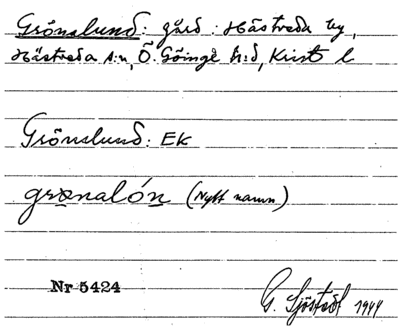 Grönslund: gård: Hästveda by,
Hästveda s:n, Ö. Göinge h:d, Krist l
Grönslund: Ek
grønalón (Nytt namn)
Nr 5424
G. Sjöstedt 1944